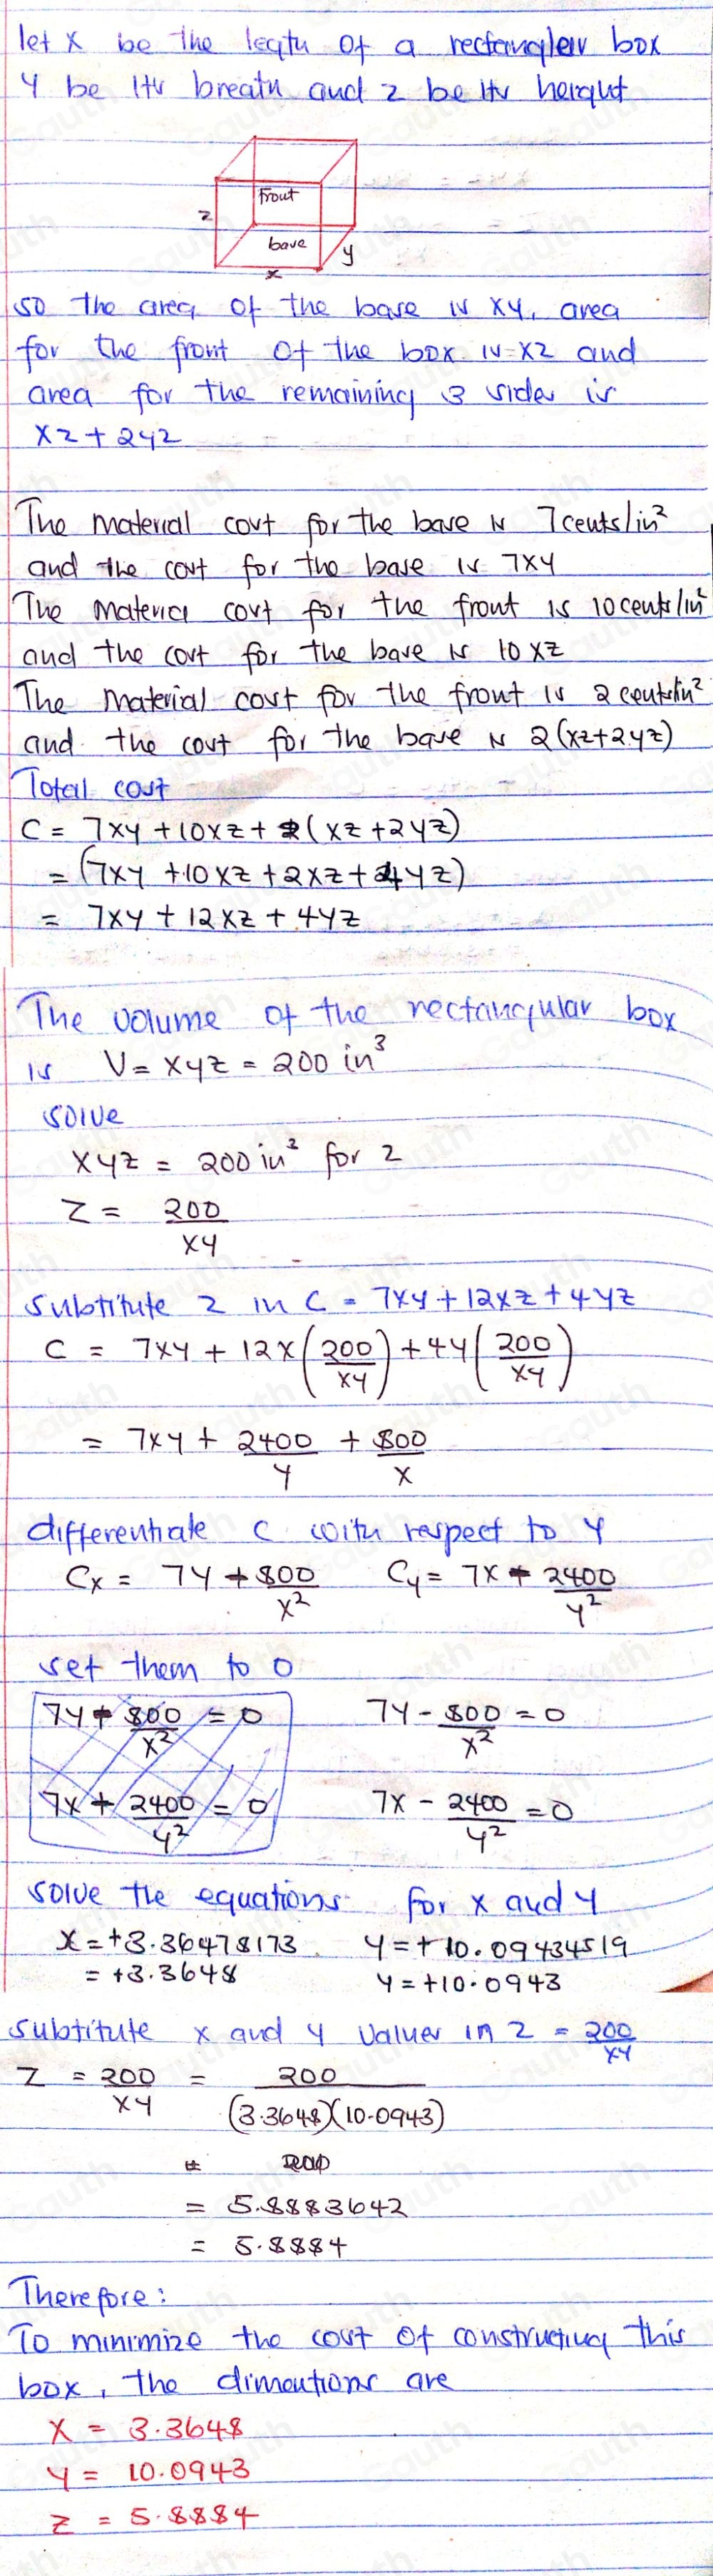 let x be the legtu of a rectanglelar box
y be its breatu and z be its height
front
z
base
y
x
so the area of the base is xy, area
for the front of the box is = xz and
area for the remaining 3 sides is
xz + 2yz
The material cost for the base is 7cents/in²
and the cost for the base is 7xy
The material cost for the front is 10cents/in²
and the cost for the base is 10xz
The material cost for the front is 2cents/in²
and the cost for the base is 2(xz+2yz)
Total cost
C = 7xy + 10xz + 2(xz + 2yz)
= (7xy + 10xz + 2xz + 4yz)
= 7xy + 12xz + 4yz
The volume of the rectangular box
is V = xyz = 200 in³
solve
xyz = 200in³ for z
z = 200/xy
substitute z in C = 7xy + 12xz + 4yz
C = 7xy + 12x(200/xy) + 4y(200/xy)
= 7xy + 2400/y + 800/x
differentiate C with respect to y
Cx = 7y + 800/x² Cy = 7x + 2400/y²
set them to 0
7y + 800/x² = 0 7y - 800/x² = 0
7x + 2400/y² = 0 7x - 2400/y² = 0
solve the equations for x and y
x = +3.36478173 y = +10.09434519
= +3.3648 y = +10.0943
substitute x and y values in z = 200/xy
z = 200/xy = 200/(3.3648)(10.0943)
= 200
= 5.8883642
= 5.8884
Therefore:
To minimize the cost of constructing this
box, the dimentions are
x = 3.3648
y = 10.0943
z = 5.8884